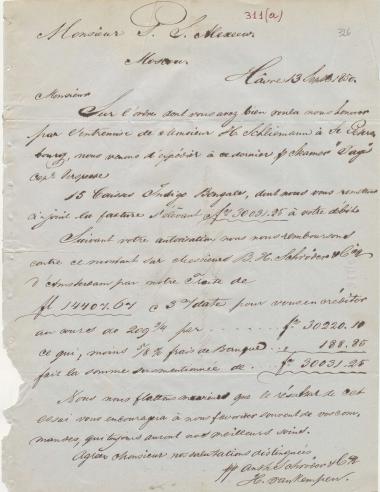 311(a)
326
Monsieur P. S. Alexeew
Moscou
Hâvre 13 1850.
Monsieur
Sur l'ordre dont vous avez bien voulu nous honorer
par l'entremise de Monsieur H. Schliemann à St Peters
bourg, nous venons d'expédier à ce dernier p Steamer
Capt.
15 Caisses Indigo Bengale, dont nous vous remettons
ci joint la facture s'élevant fs 30031.25 à votre débit.
Suivant votre autorisation nous nous remboursons
contre ce montant sur Messieurs B. H. Schröder & Cie
d'Amsterdam par notre Traite de
fl 14407.67 à 3 m/date pour vous en créditer
au cours de 209 3/4 per fs 30220.10
ce qui, moins 5/8 % frais de Banque " 188.85
fait la somme susmentionnée de fs 30031.25
Nous nous flattons que le résultat de cet
essai vous encouragera à nous favoriser souvent de vos com,
mandes, qui toujours auront nos meilleurs soins.
Agréez Monsieur nos salutations distinguées
pp Anth. Schröder & Cie
H. van Kempen